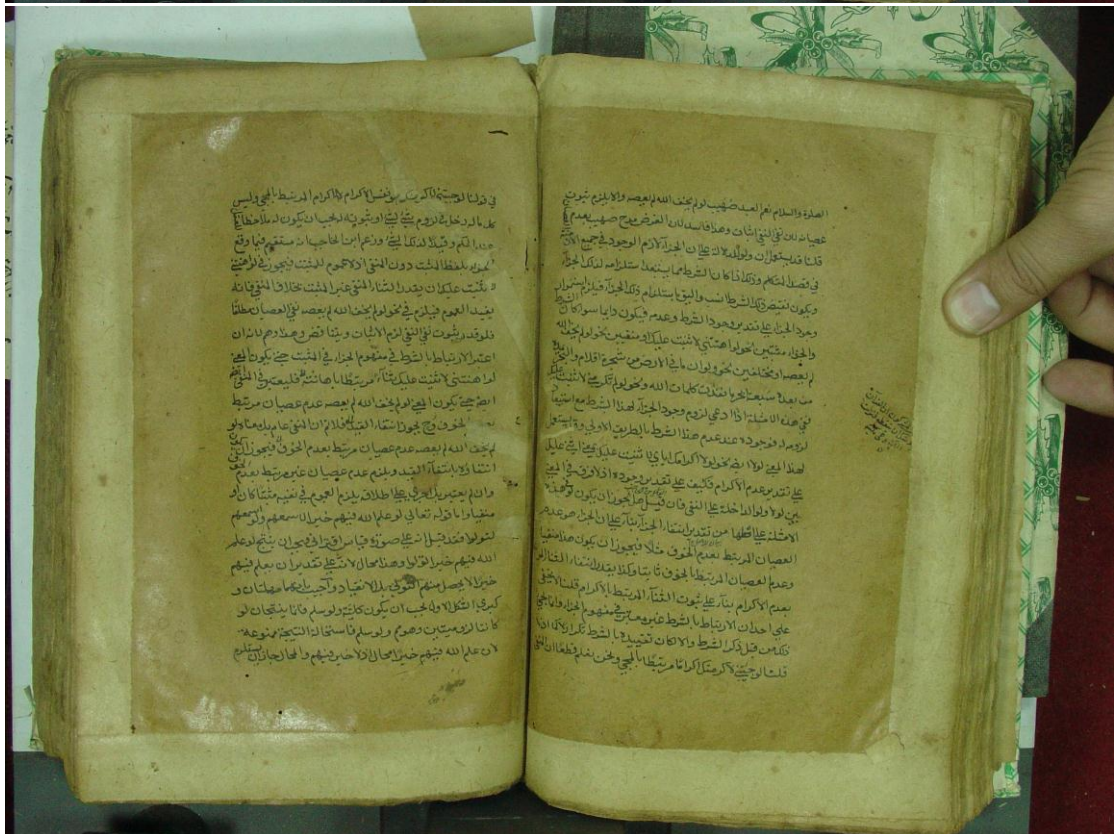 الصلوة والسلام نعم العبد صهيب لولم يخف الله لم يعصه والا يلزم ثبوت
عصيانه لان نفي النفي اثبات وهذا فاسد لان الغرض مدح صهيب بعدم
قلنا قد يستعمل ان ولو للدلالة على ان الجزاء لازم الوجود في جميع الازمنة
في قصد المتكلم وذلك اذا كان الشرط مما يستبعد استلزامه لذلك الجزاء
ويكون نقيض ذلك الشرط انسب واليق باستلزام ذلك الجزاء فيلزم استمرار
وجود الجزاء على تقدير وجود الشرط وعدمه فيكون دايما سواء كان الشرط
والجزاء مثبتين نحو لو اهنتني لاثنيت عليك او منفيين نحو لولم يخف الله
لم يعصه او مختلفين نحو ولو ان ما في الارض من شجرة اقلام والبحر يمده
من بعده سبعة ابحر ما نفدت كلمات الله ونحو لو لم تكرمني لاثنيت عليك
ففي هذه الامثلة اذا ادعي لزوم وجود الجزاء لهذا الشرط مع استبعاد
لزومه له فوجوده عند عدم هذا الشرط بالطريق الاولى وقد يستعمل
لهذا المعنى لولا ايضا نحو لولا اكرامك اياي لاثنيت عليك يعني اثني عليك
على تقدير عدم الاكرام فكيف على تقدير وجوده اذ لا فرق في المعنى
بين لولا ولو الداخلة على النفي فان قيل هل يجوز ان يكون لو في هذه
الامثلة على اصلها من تقدير انتفاء الجزاء بناء على ان الجزاء هو عدم
العصيان المرتبط بعدم الخوف مثلا فيجوز ان يكون هذا منفيا
وعدم العصيان المرتبط بالخوف ثابتا وكذا يقدر انتفاء الثناء المرتبط
بعدم الاكرام بناء على ثبوت الثناء المرتبط بالاكرام قلنا لا يخفى
على احد ان الارتباط بالشرط غير معتبر في مفهوم الجزاء وانما يجيء
ذلك من قبل ذكر الشرط والا لكان تقييده بالشرط تكرارا كما اذا
قلنا لو جئتني لاكرمتك اكراما مرتبطا بالمجيء ونحن نعلم قطعا ان المنفي
في قولنا لو جئتني لاكرمتك هو نفس الاكرام لا الاكرام المرتبط بالمجيء وليس
كل ما له دخل في لزوم شيء لشيء او ثبوته له يجب ان يكون له ملاحظا في
عند الحكم وقيدا لذلك الشيء وزعم ابن الحاجب انه مستقيم فيما وقع
الجزاء بلفظ المثبت دون المنفي اذ لا عموم للمثبت فيجوز في لو اهنتني
لاثنيت عليك ان يقدر الثناء المنفي غير المثبت بخلاف المنفي فانه
يفيد العموم فيلزم في نحو لو لم يخف الله لم يعصه نفي العصيان مطلقا
فلو قدر ثبوت نفي النفي لزم الاثبات ويتناقض وهذا وهم لانه ان
اعتبر الارتباط بالشرط في مفهوم الجزاء في المثبت حتى يكون المعنى
لو اهنتني لاثنيت عليك ثناء مرتبطا باهانتك فليعتبر في المنفي
ايضا حتى يكون المعنى لو لم يخف الله لم يعصه عدم عصيان مرتبط
بعدم الخوف وح يجوز انتفاء القيد
لم يخف الله لم يعصه عدم عصيان مرتبط بعدم الخوف فيجوز ان يكون
انتفاؤه بانتفاء القيد ويلزم عدم عصيان غير مرتبط بعدم الخوف
وان لم يعتبر بل اجري على اطلاقه يلزم العموم في نفيه مثبتا كان او
منفيا واما قوله تعالى لو علم الله فيهم خيرا لاسمعهم ولو اسمعهم
لتولوا فقد قيل انه على صورة قياس اقتراني فيجب ان ينتج لو علم
الله فيهم خيرا لتولوا وهذا محال لانه على تقدير ان يعلم فيهم
خيرا لا يحصل منهم التولي بل الانقياد واجيب بانهما مهملتان و
كبرى الشكل الاول يجب ان يكون كلية ولو سلم فانما ينتجان لو
كانتا لزوميتين وهو مم ولو سلم فاستحالة النتيجة ممنوعة
لان علم الله فيهم خيرا محال اذ لا خير فيهم والمحال جاز ان يستلزم